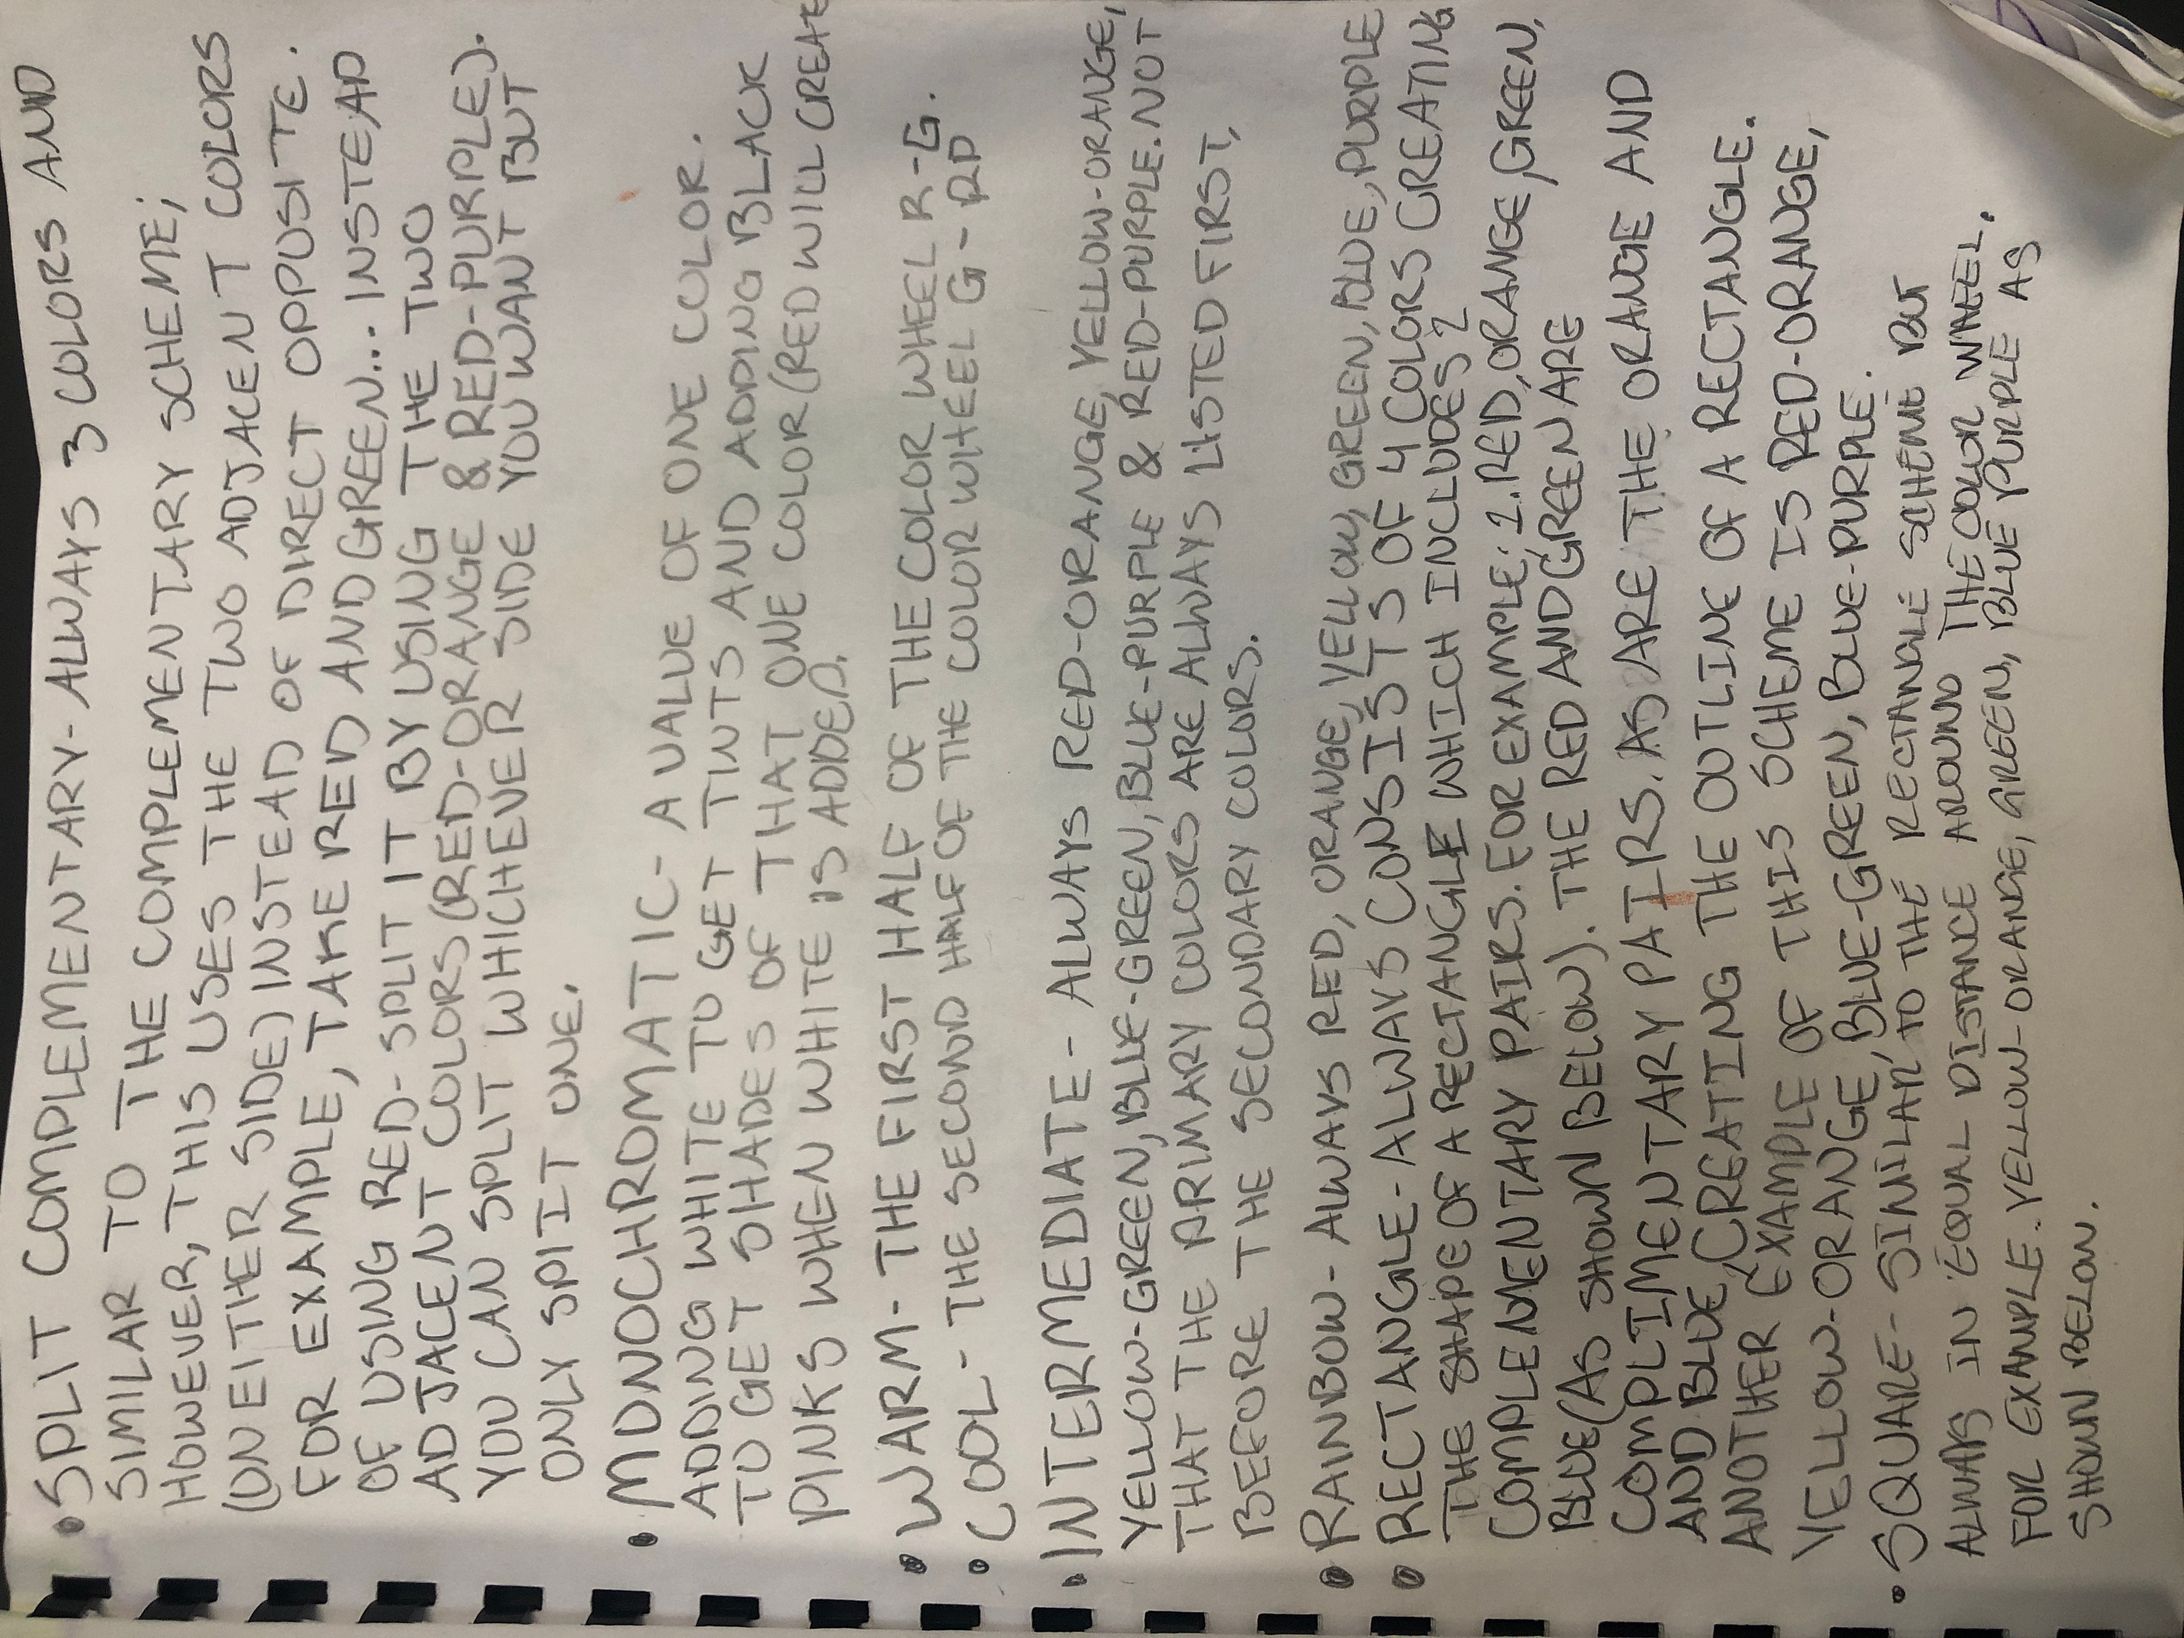 • SPLIT COMPLEMENTARY - ALWAYS 3 COLORS AND
SIMILAR TO THE COMPLEMENTARY SCHEME;
HOWEVER, THIS USES THE TWO ADJACENT COLORS
(ON EITHER SIDE) INSTEAD OF DIRECT OPPOSITE.
FOR EXAMPLE, TAKE RED AND GREEN... INSTEAD
OF USING RED - SPLIT IT BY USING THE TWO
ADJACENT COLORS (RED-ORANGE & RED-PURPLE).
YOU CAN SPLIT WHICHEVER SIDE YOU WANT BUT
ONLY SPIT ONE.
• MONOCHROMATIC - A VALUE OF ONE COLOR.
ADDING WHITE TO GET TINTS AND ADDING BLACK
TO GET SHADES OF THAT ONE COLOR (RED WILL CREATE
PINKS WHEN WHITE IS ADDED.
• WARM - THE FIRST HALF OF THE COLOR WHEEL R-G.
• COOL - THE SECOND HALF OF THE COLOR WHEEL G - RP
• INTERMEDIATE - ALWAYS RED-ORANGE, YELLOW-ORANGE,
YELLOW-GREEN, BLUE-GREEN, BLUE-PURPLE & RED-PURPLE. NOT
THAT THE PRIMARY COLORS ARE ALWAYS LISTED FIRST,
BEFORE THE SECONDARY COLORS.
• RAINBOW - ALWAYS RED, ORANGE, YELLOW, GREEN, BLUE, PURPLE
• RECTANGLE - ALWAYS CONSISTS OF 4 COLORS CREATING
THE SHAPE OF A RECTANGLE WHICH INCLUDES 2
COMPLEMENTARY PAIRS. FOR EXAMPLE: 1. RED, ORANGE, GREEN,
BLUE (AS SHOWN BELOW). THE RED AND GREEN ARE
COMPLIMENTARY PAIRS. AS ARE THE ORANGE AND
AND BLUE, CREATING THE OUTLINE OF A RECTANGLE.
ANOTHER EXAMPLE OF THIS SCHEME IS RED-ORANGE,
YELLOW-ORANGE, BLUE-GREEN, BLUE-PURPLE.
• SQUARE - SIMILAR TO THE RECTANGLE SCHEME BUT
ALWAYS IN EQUAL DISTANCE AROUND THE COLOR WHEEL.
FOR EXAMPLE. YELLOW-ORANGE, GREEN, BLUE PURPLE AS
SHOWN BELOW.